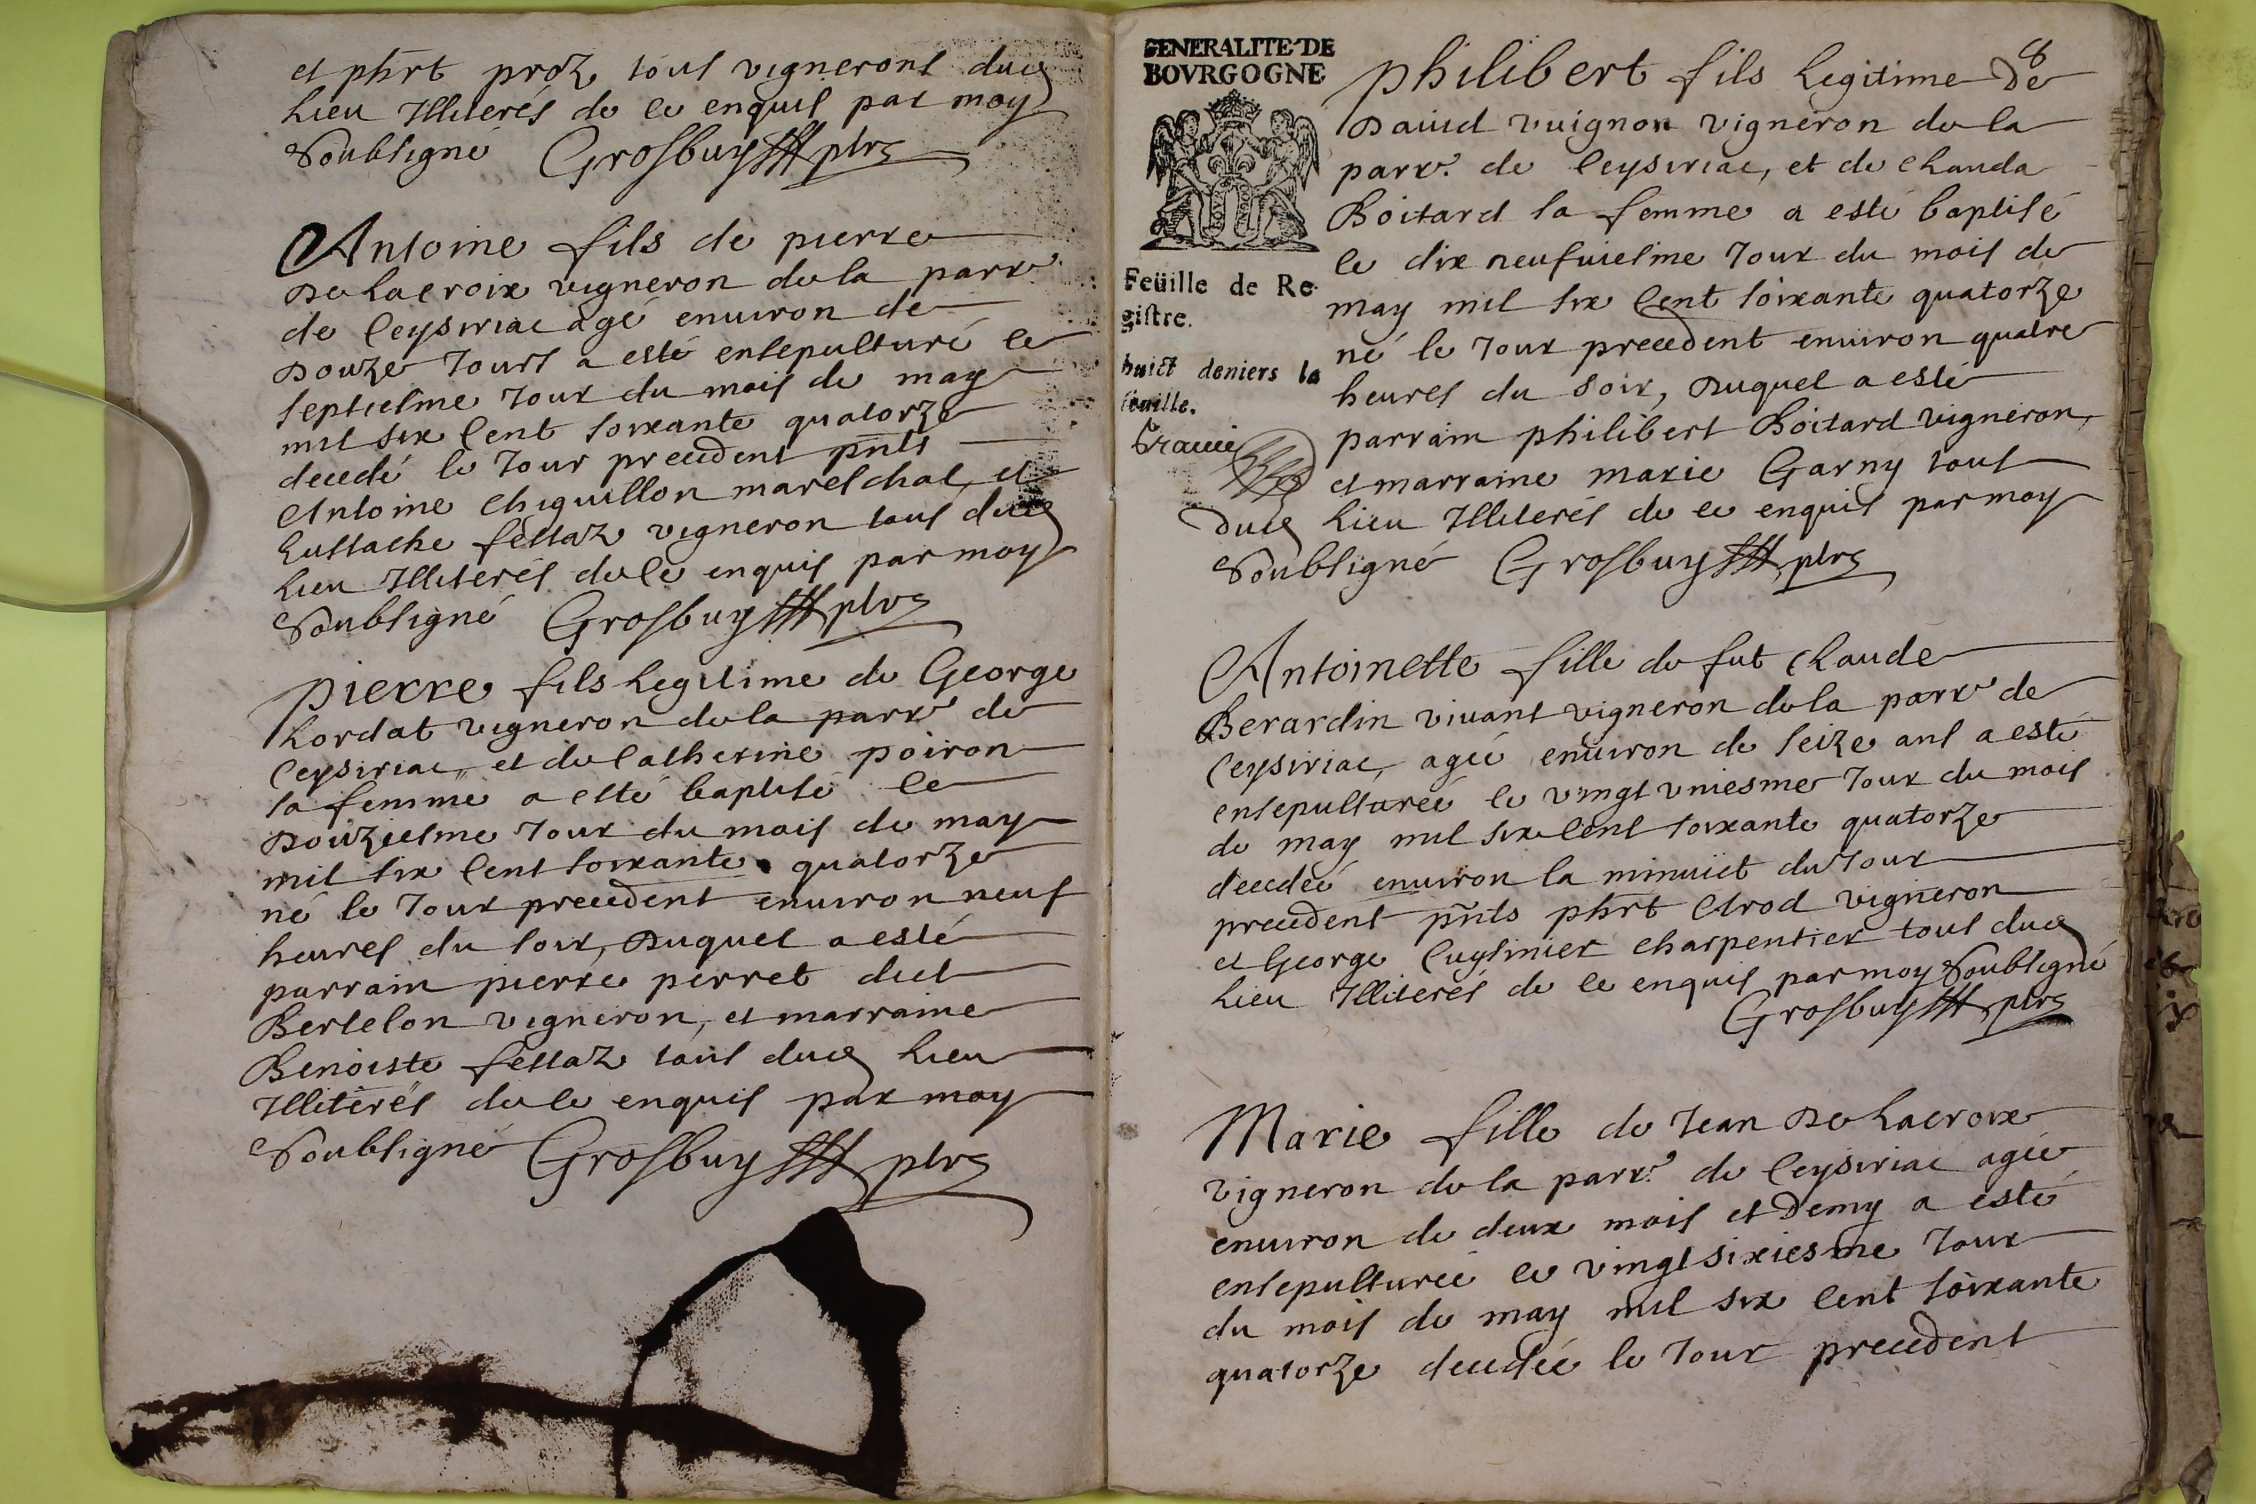 et phrt proz tous vignerons dud
Lieu Illiterés de ce enquis par moy
Soubsigné Grosbuy ptre
Antoine fils de pierre
De Lacroix vigneron de la parr.e
de Ceysiriac agé enuiron de
Douze Jours a esté ensepulturé le
septiesme Jour du mois de may
mil six Cent soixante quatorze
decedé le Jour precedent pnts
Antoine Chiquillon mareschal, et
Eustache fettaz vigneron tous dud
Lieu Illiterés de Ce enquis par moy
Soubsigné Grosbuy ptre
Pierre fils Legitime de George
Lordat vigneron de la parr.e de
Ceysiriac, et de Catherine poiron
sa femme a esté baptisé le
Douziesme Jour du mois de may
mil six Cent soixante quatorze
né le Jour precedent enuiron neuf
heures du soir, Duquel a esté
parrain pierre perret dict
Bertelon vigneron, et marraine
Benoiste fettaz tous dud Lieu
Illiterés de Ce enquis par moy
Soubsigné Grosbuy ptre
8
GENERALITE DE
BOVRGOGNE
Feüille de Re-
gistre.
huict deniers la
feuille.
Philibert fils Legitime De
Dauid vuignon vigneron de la
parr.e de Ceysiriac, et de Clauda
Boitard sa femme a esté baptisé
le dix neufuiesme Jour du mois de
may mil six Cent soixante quatorze
né le Jour precedent enuiron quatre
heures du Soir, Duquel a esté
parrain philibert Boitard vigneron,
et marraine marie Garny tous
dud Lieu Illiterés de ce enquis par moy
Soubsigné Grosbuy ptre
Antoinette fille de fut Claude
Berardin viuant vigneron de la parr.e de
Ceysiriac, agée enuiron de seize ans a esté
ensepulturée le vingt vniesme Jour du mois
de may mil six Cent soixante quatorze
decedée enuiron la minuict du Jour
precedent pnts phrt Arod vigneron
et George Cuysinier charpentier tous dud
Lieu Illiterés de ce enquis par moy Soubsigné
Grosbuy ptre
Marie fille de Jean De Lacroix
vigneron de la parr.e de Ceysiriac agée
enuiron de deux mois et Demy a esté
ensepulturée le vingt sixiesme Jour
du mois de may mil six Cent soixante
quatorze decedée le Jour precedent